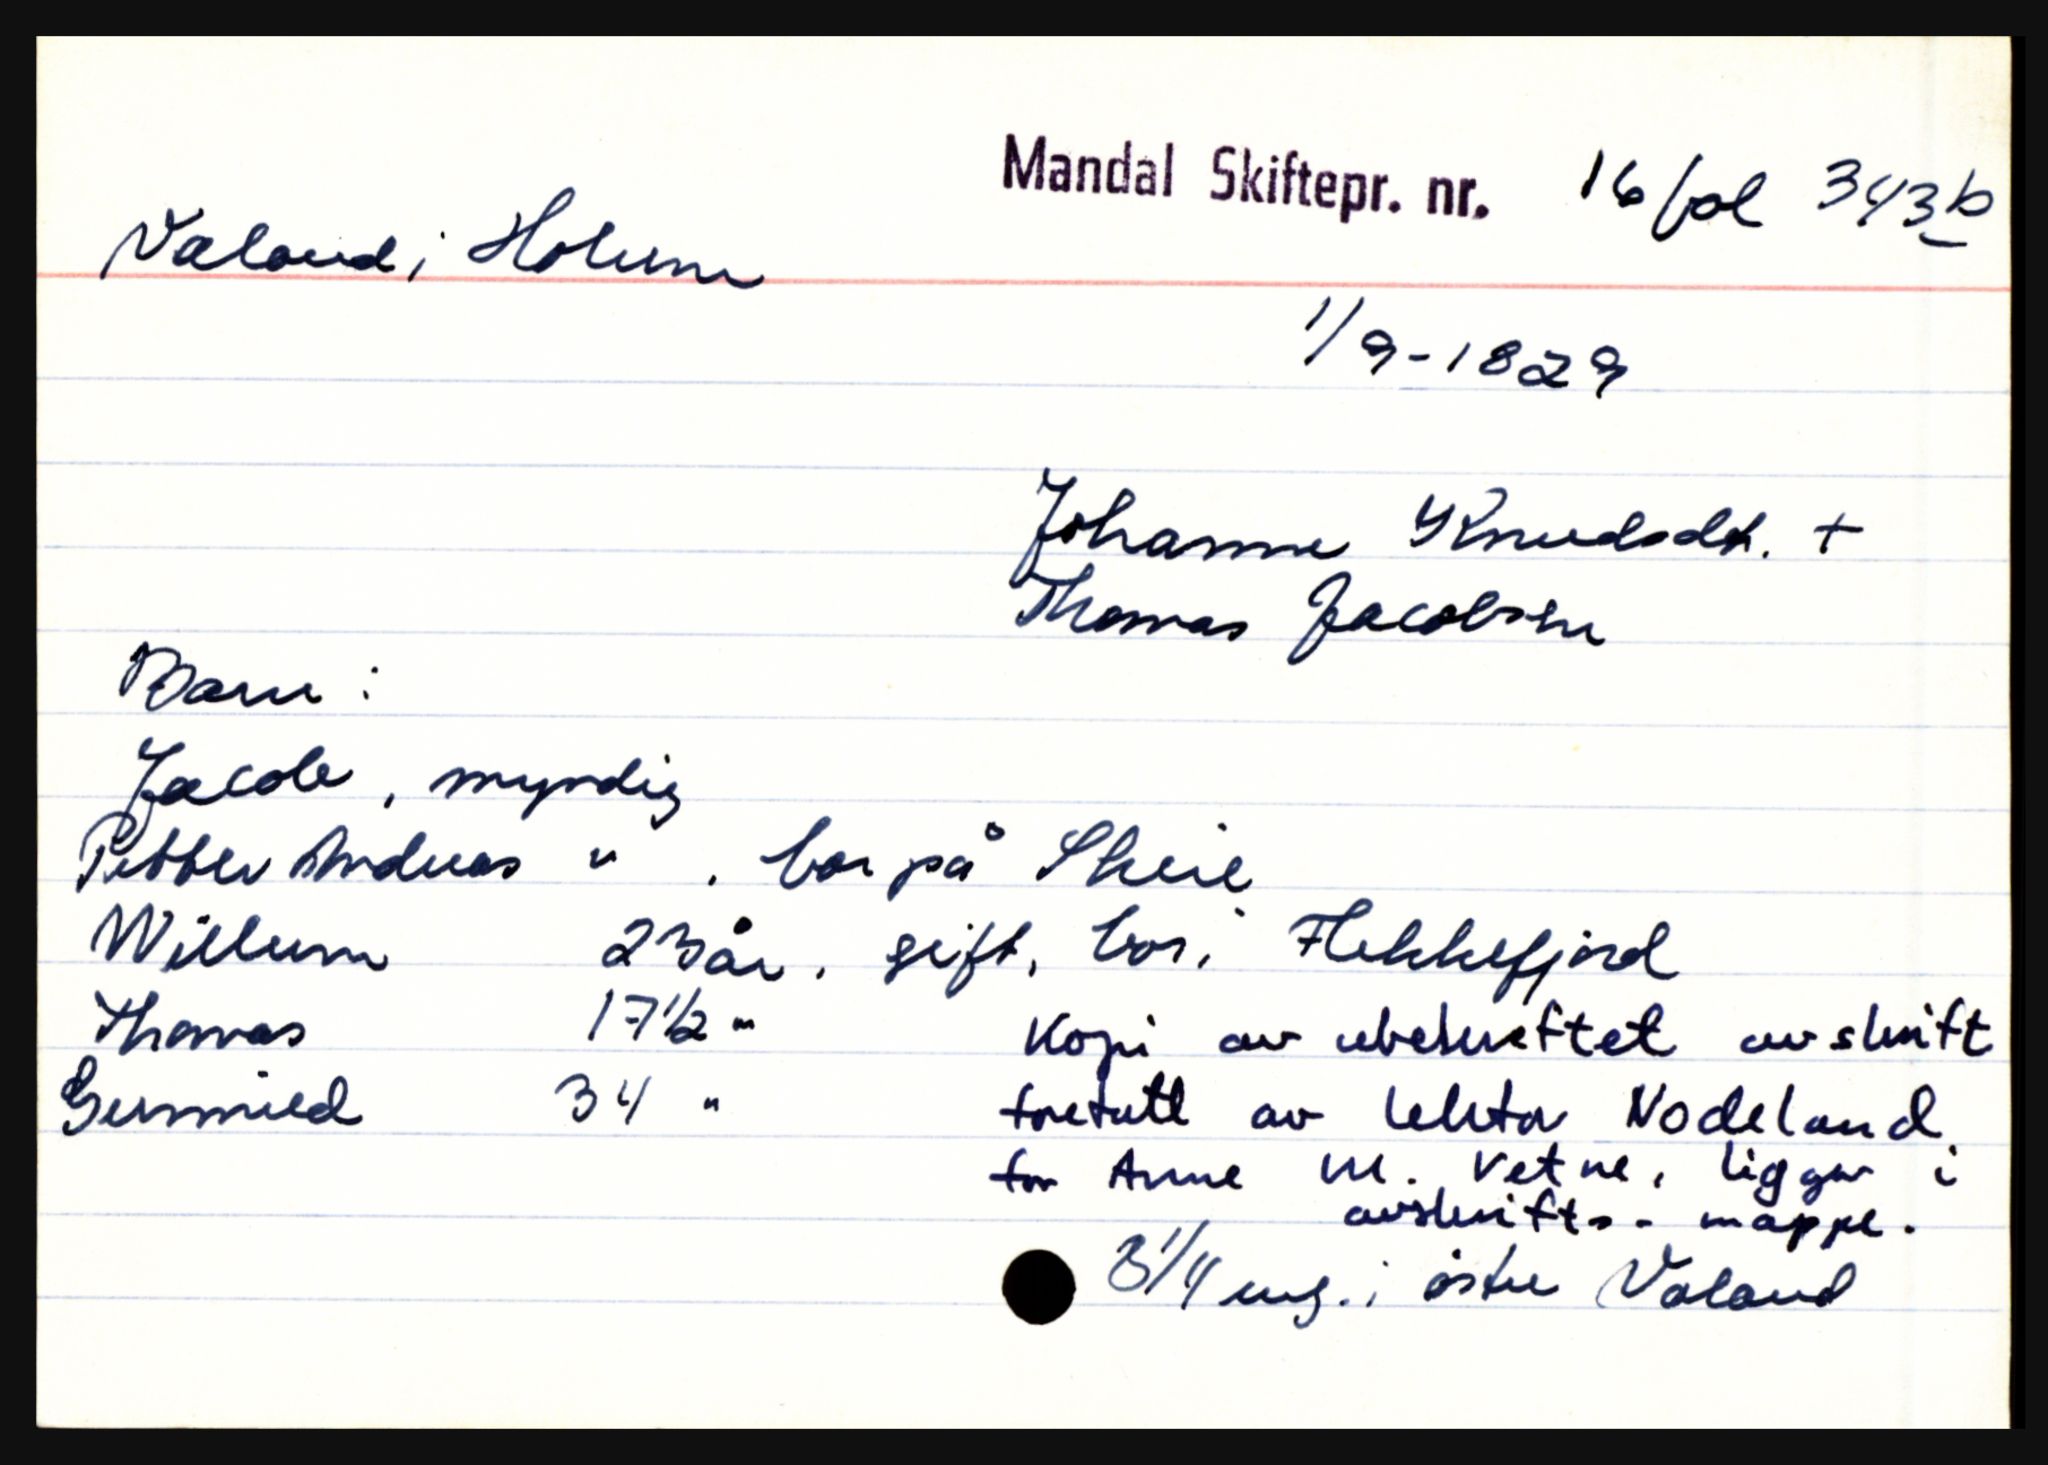 Mandal Skiftepr. nr. 16 fol 343b
Valand i Holum
1/9-1829
Johanne Knudsdt. +
Thomas Jacobsen
Barn :
Jacob, myndig
Petter Andreas " , bor på Skeie
Willum 23 år, gift, bor i Flekkefjord
Thomas 17 1/2 "
Gunnuld 34 "
Kopi av ubekreftet avskrift
foretatt av lektor Nodeland
for Anne M. Vetne, ligger i
avskrifts- mappe.
3 1/4 eng. i østre Valand